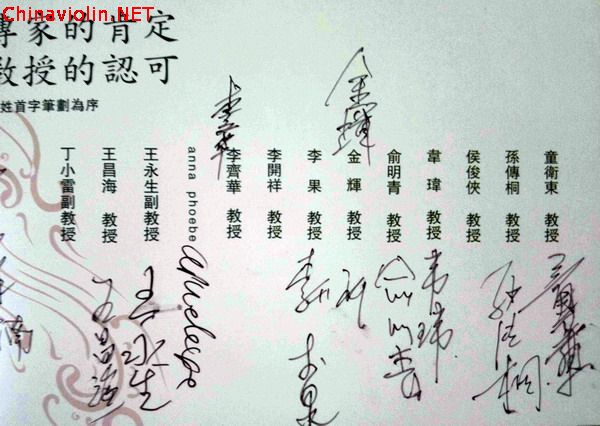 Chinaviolin.NET
專家的肯定
教授的認可
姓首字筆劃為序
丁小雷副教授
王昌海 教授
王永生副教授
anna phoebe
李齊華 教授
李開祥 教授
李果 教授
金輝 教授
俞明青 教授
韋瑋 教授
侯俊俠 教授
孫傳桐 教授
童衛東 教授
金輝
王昌海
王永生
李果
俞明青
韋瑋